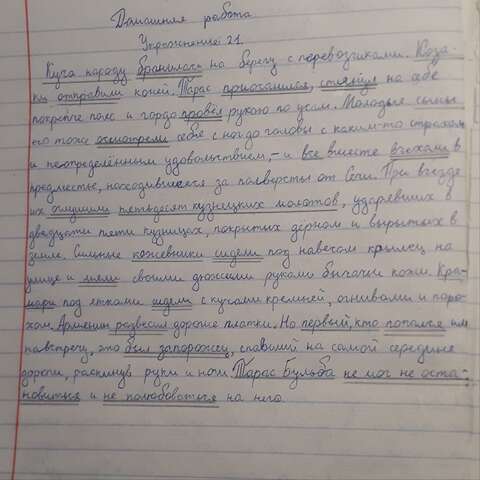 Домашняя работа.
Упражнение 21.
Куча народу бранилась на берегу с перевозчиками. Коза-
ки отправили коней. Тарас приосанился, стянул на себе
покрепче пояс и гордо провёл рукою по усам. Молодые сыны
его тоже осмотрели себя с ног до головы с каким-то страхом
и неопределённым удовольствием, - и все вместе въехали в
предместье, находившееся за полверсты от Сечи. При въезде
их оглушили пятьдесят кузнецких молотов, ударявших в
двадцати пяти кузницах, покрытых дёрном и вырытых в
земле. Сильные кожевники сидели под навесом крылец на
улице и мяли своими дюжими руками бычачьи кожи. Кра-
мари под ятками сидели с кучами кремней, огнивами и поро-
хом. Армянин развесил дорогие платки. Но первый, кто попался им
навстречу, это был запорожец, спавший на самой середине
дороги, раскинув руки и ноги. Тарас Бульба не мог не оста-
новиться и не полюбоваться на него.